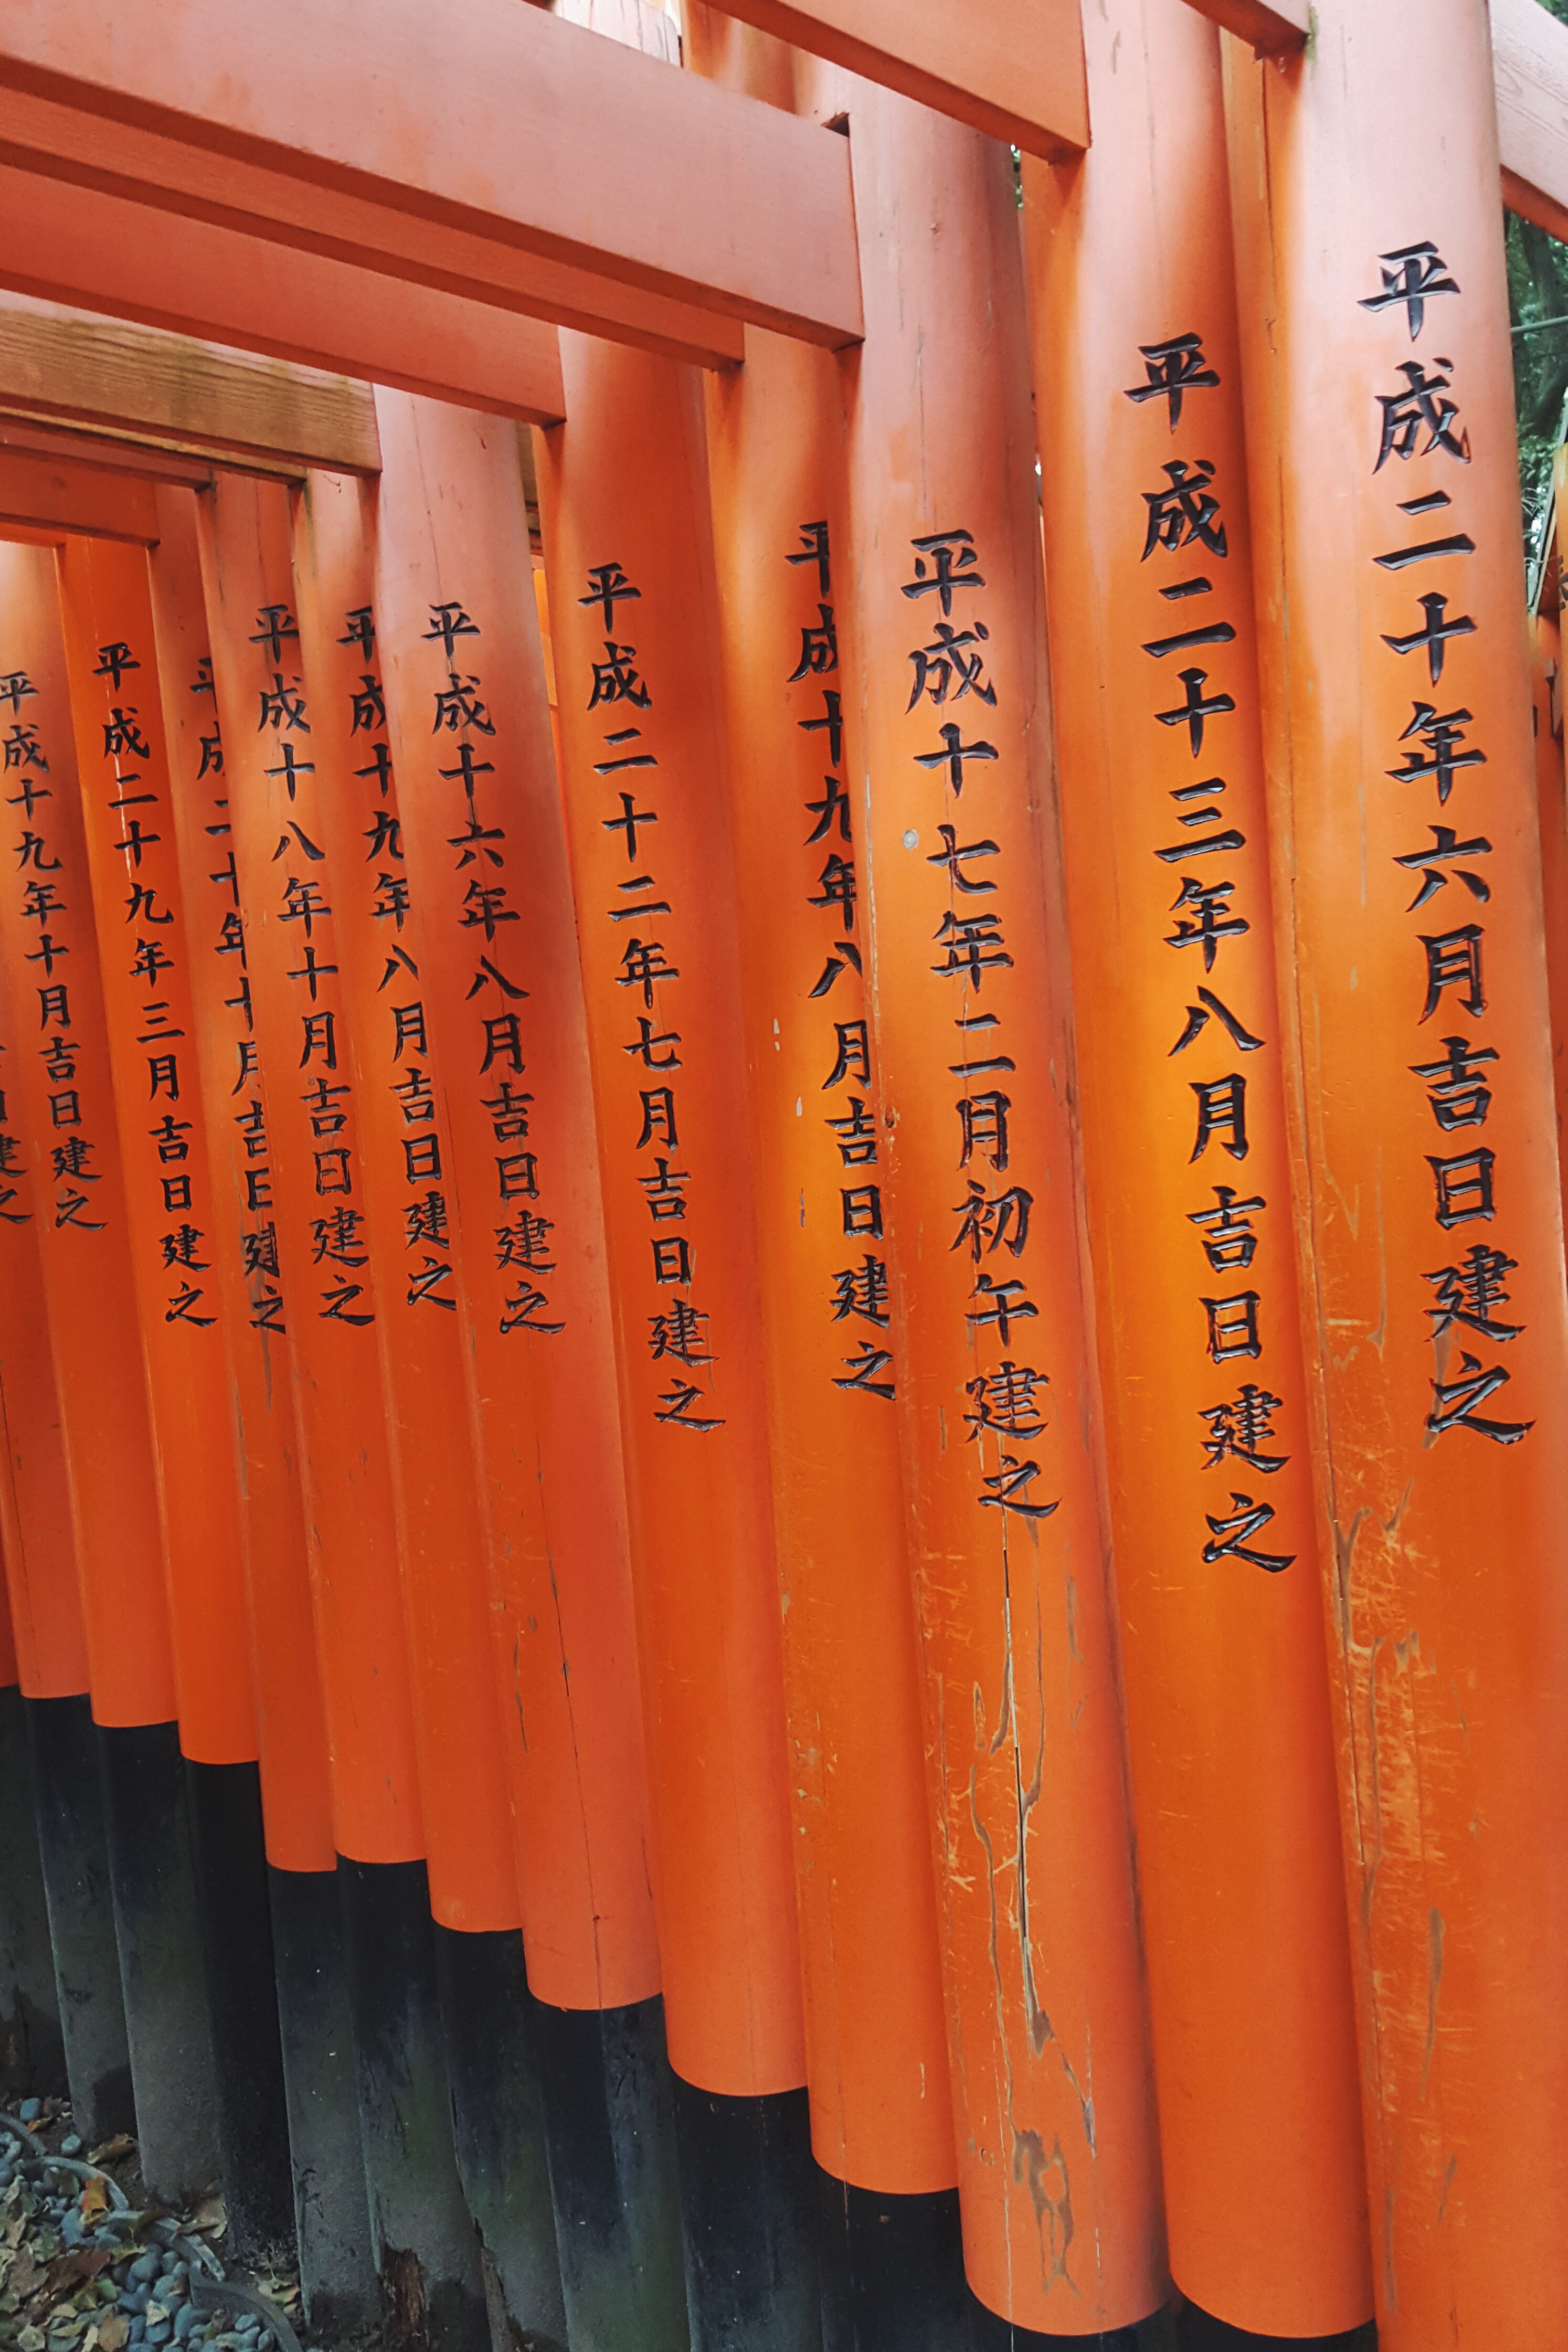 平成二十年六月吉日建之
平成二十三年八月吉日建之
平成十七年二月初午建之
平成十九年八月吉日建之
平成二十二年七月吉日建之
平成十六年八月吉日建之
平成十九年八月吉日建之
平成十八年十月吉日建之
平成二十年十月吉日建之
平成二十九年三月吉日建之
平成十九年十月吉日建之
日建之